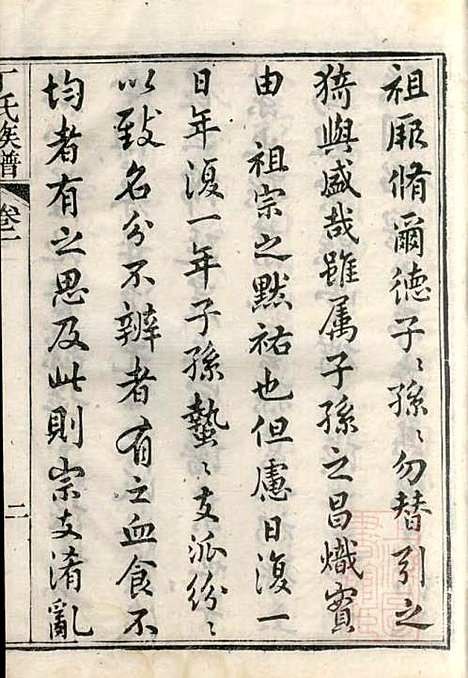 祖聿脩爾德子〻孫〻勿替引之
猗與盛哉雖属子孫之昌熾實
由　祖宗之默祐也但慮日復一
日年復一年子孫蟄〻支派紛〻
以致名分不辨者有之血食不
均者有之思及此則宗支淆亂
丁氏族譜
卷一
二